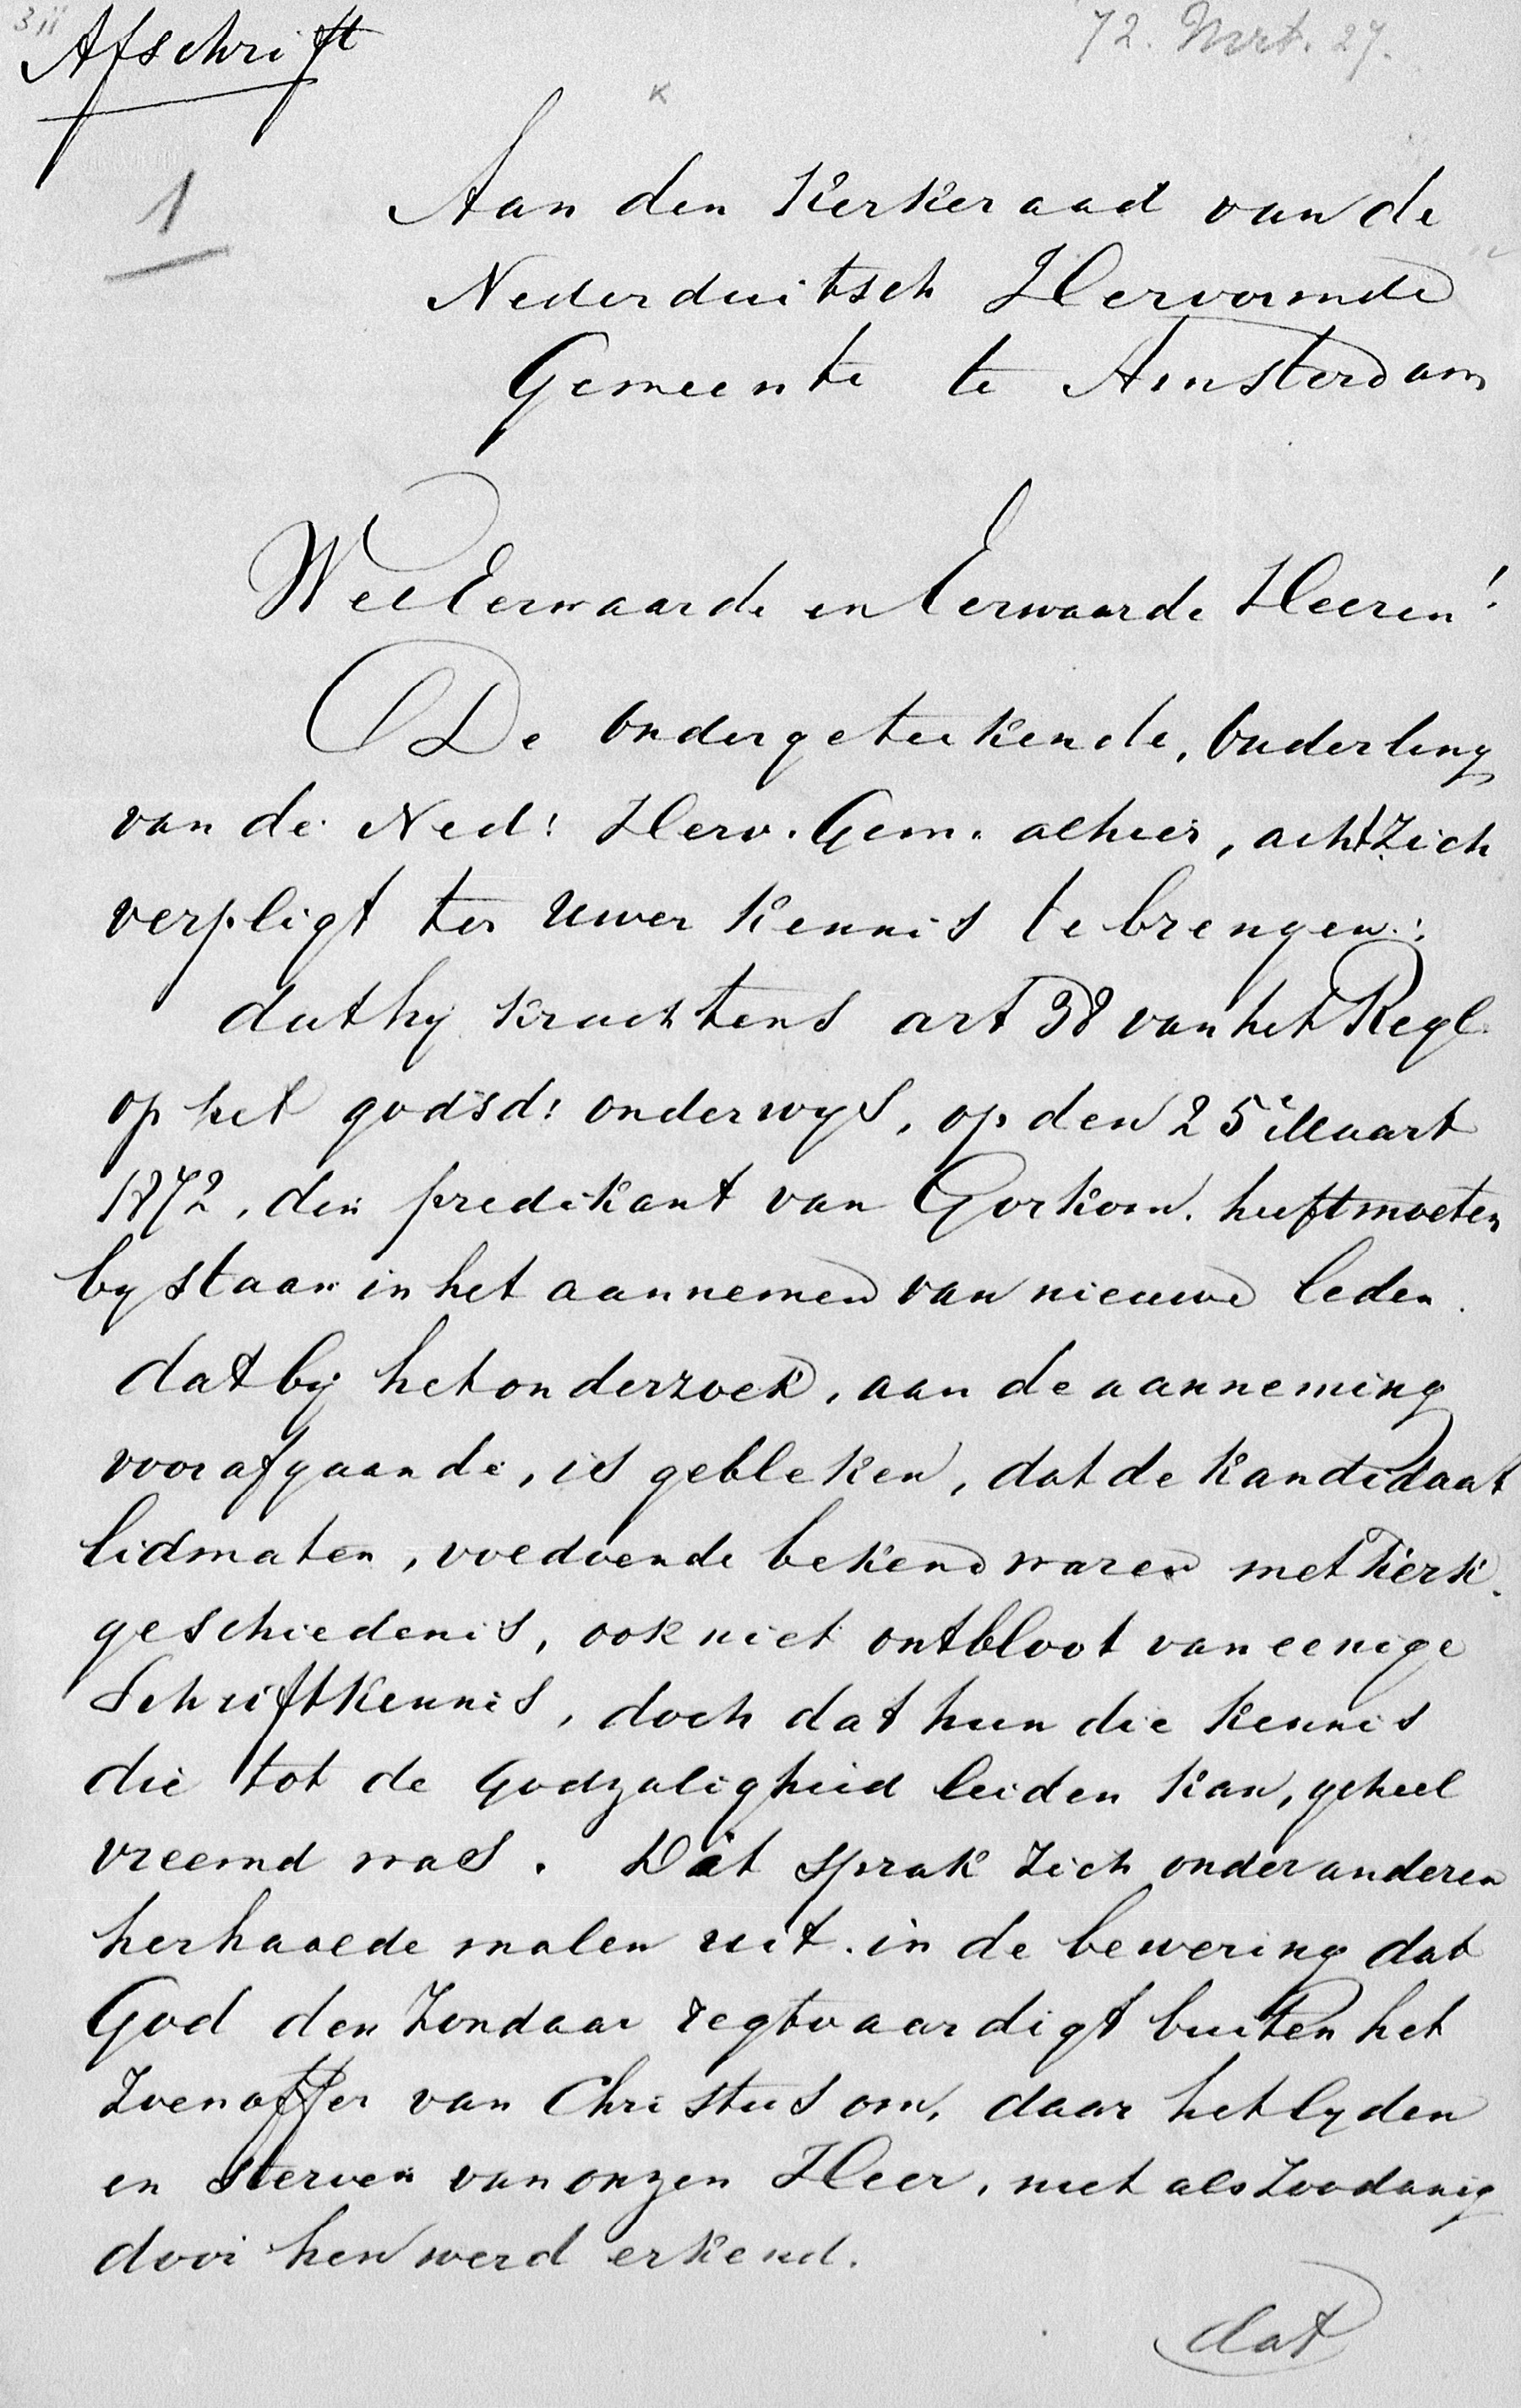 3ii
Afschrift
72. Mrt. 27.
1
Aan den Kerkeraad van de
Nederduitsch Hervormde
Gemeente te Amsterdam
WelEerwaarde en Eerwaarde Heeren!
De ondergeteekende, Ouderling
van de Ned: Herv. Gem. alhier, acht zich
verpligt ter Uwer kennis te brengen:
dat hij krachtens art 38 van het Regl.
op het godsd: onderwijs, op den 25 Maart
1872, den predikant van Gorkom. heeft moeten
bijstaan in het aannemen van nieuwe leden.
dat bij het onderzoek, aan de aanneming
voorafgaande, is gebleken, dat de kandidaat
lidmaten, voldoende bekend waren met Kerk.
geschiedenis, ook niet ontbloot van eenige
Schriftkennis, doch dat hun die kennis
die tot de Godzaligheid leiden kan, geheel
vreemd was. Dat sprak zich onder anderen
herhaalde malen uit. in de bewering dat
God den Zondaar regtvaardigt buiten het
Zoenoffer van Christus om, daar het lijden
en sterven van onzen Heer, niet als zoodanig
door hen werd erkend.
dat